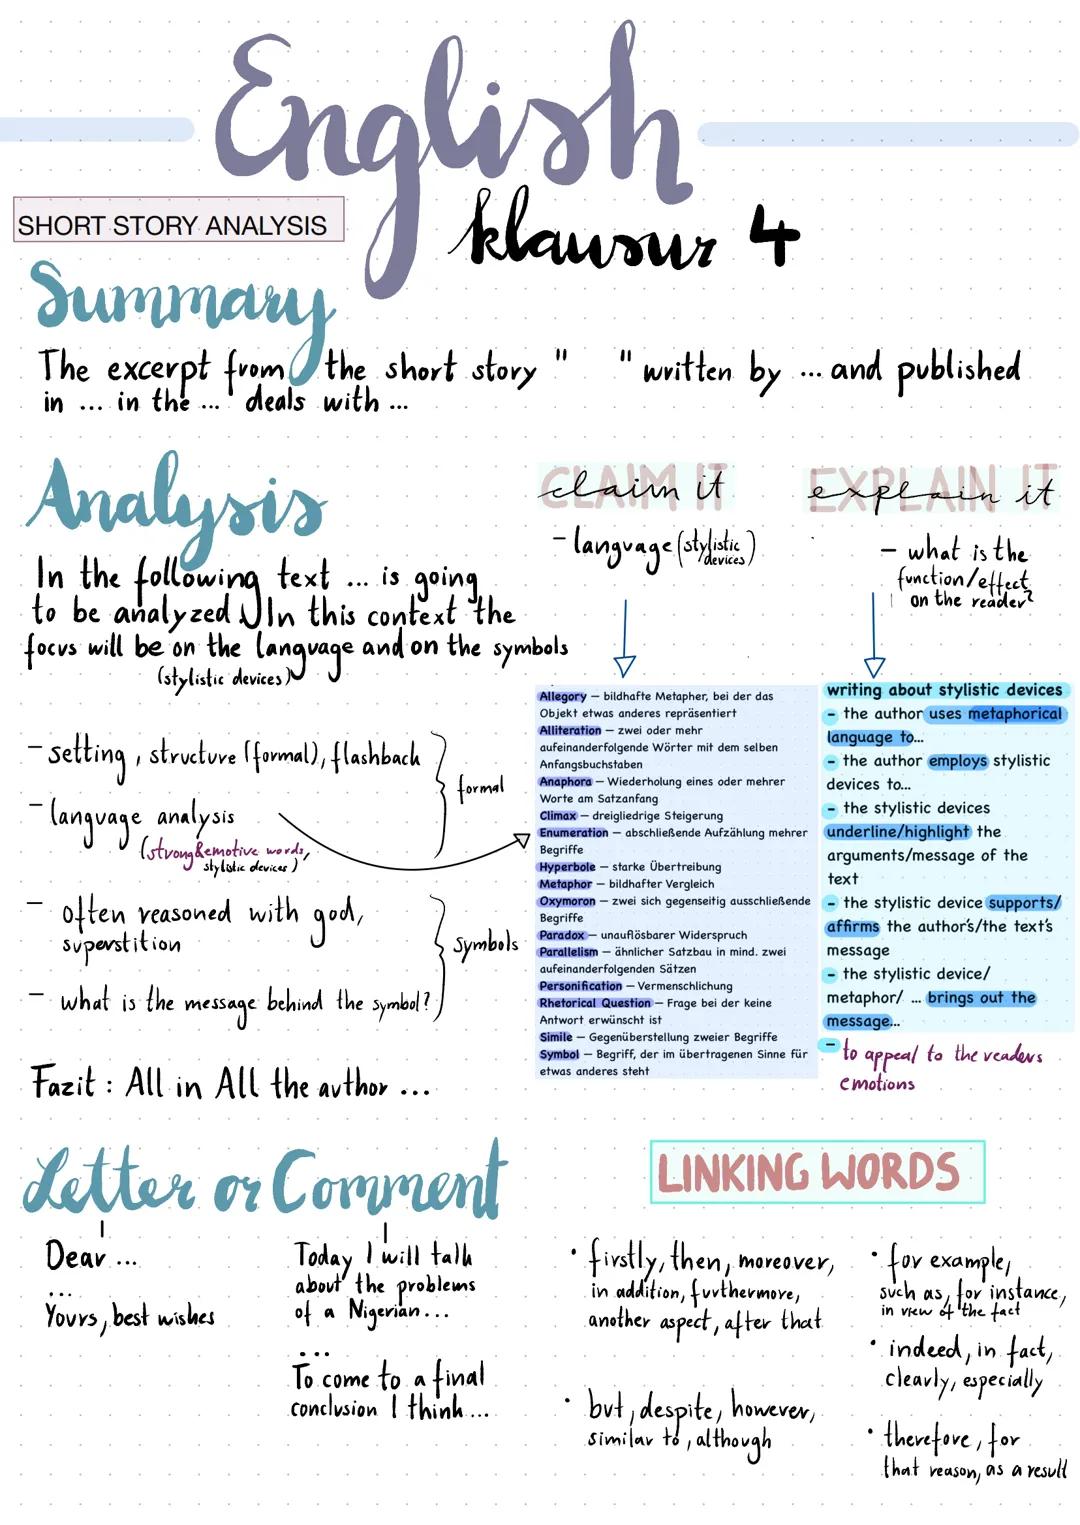 English
klausur 4
SHORT STORY ANALYSIS
Summary
The excerpt from the short story " " written by ... and published
in ... in the ... deals with ...
Analysis
In the following text ... is going
to be analyzed. In this context the
focus will be on the language and on the symbols
(stylistic devices)
- setting, structure (formal), flashback
- language analysis
(strong & emotive words,
stylistic devices)
formal
- often reasoned with god,
superstition
- what is the message behind the symbol?
symbols
Fazit: All in All the author ...
CLAIM IT
claim it
- language (stylistic
devices)
Allegory – bildhafte Metapher, bei der das
Objekt etwas anderes repräsentiert
Alliteration – zwei oder mehr
aufeinanderfolgende Wörter mit dem selben
Anfangsbuchstaben
Anaphora – Wiederholung eines oder mehrer
Worte am Satzanfang
Climax – dreigliedrige Steigerung
Enumeration – abschließende Aufzählung mehrer
Begriffe
Hyperbole – starke Übertreibung
Metaphor – bildhafter Vergleich
Oxymoron – zwei sich gegenseitig ausschließende
Begriffe
Paradox – unauflösbarer Widerspruch
Parallelism – ähnlicher Satzbau in mind. zwei
aufeinanderfolgenden Sätzen
Personification – Vermenschlichung
Rhetorical Question – Frage bei der keine
Antwort erwünscht ist
Simile – Gegenüberstellung zweier Begriffe
Symbol – Begriff, der im übertragenen Sinne für
etwas anderes steht
EXPLAIN IT
explain it
- what is the
function/effect
on the reader?
writing about stylistic devices
- the author uses metaphorical
language to...
- the author employs stylistic
devices to...
- the stylistic devices
underline/highlight the
arguments/message of the
text
- the stylistic device supports/
affirms the author's/the text's
message
- the stylistic device/
metaphor/ ... brings out the
message...
- to appeal to the readers
emotions
Letter or Comment
Dear ...
...
Yours, best wishes
Today I will talk
about the problems
of a Nigerian...
...
To come to a final
conclusion I think ...
LINKING WORDS
• firstly, then, moreover,
in addition, furthermore,
another aspect, after that
• but, despite, however,
similar to, although
• for example,
such as, for instance,
in view of the fact
• indeed, in fact,
clearly, especially
• therefore, for
that reason, as a result